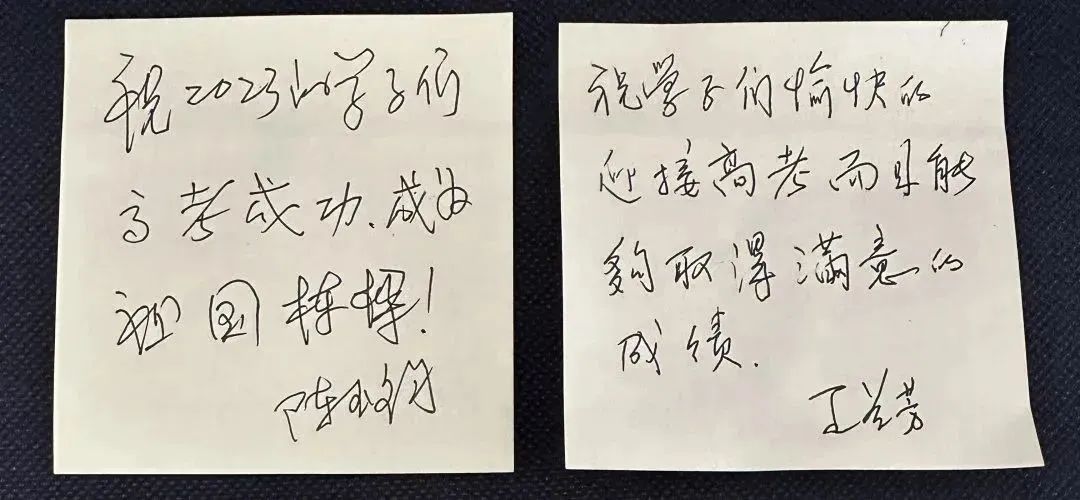 祝2023的学子们
高考成功.成为
祖国栋梁!
陈
祝学子们愉快的
迎接高考而且能
够取得满意的
成绩.
王兰芳